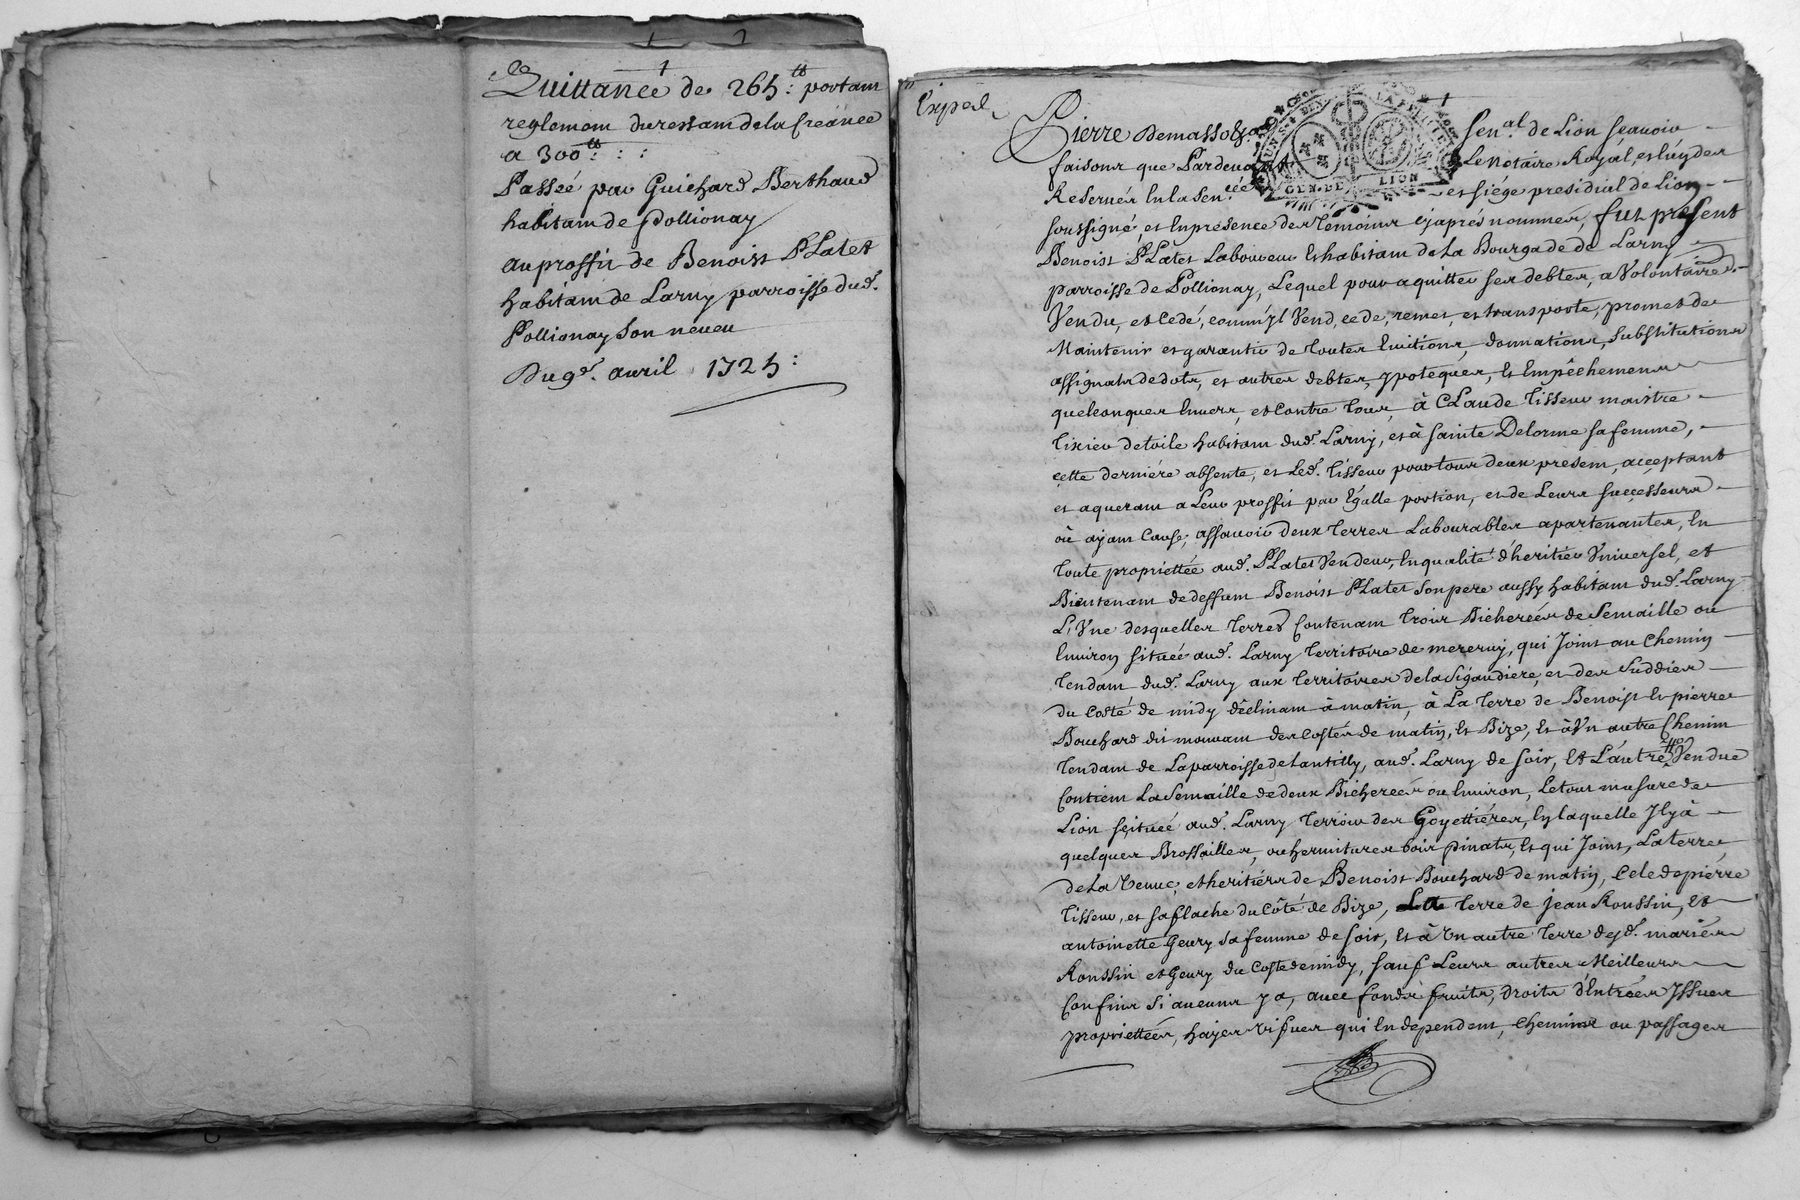 Quittance de 265:tt portant
reglement du restant de la creance
a 300:tt : :
Passée par Guichard Berthaud
habitant de Pollionay
au proffit de Benoist Plates
habitant de Larny parroisse dud.
Pollionay son neveu
Du 9e. avril 1725:
Exped
Pierre Demassol Sen.al de Lion scavoir
faisons que Pardevant Le notaire Royal, es
Reservés En la Sen.cée et siége presidial de Lion
soussigné, et En presence des temoins cy aprés nommés, fut présent
Benoist Plates Laboureur Et habitant de La Bourgade de Larny
parroisse de Pollionay, Lequel pour aquitter ses debtes, a Volontairem.
Vendu, et Cedé, comm'yl Vend, cede, remet, et transporte, promet de
Maintenir et garantir de toutes Evictions, donnations, Substitutions
assignats de dots, et autres debtes, ypoteques, Et Empêchemens
quelconques Envers, et Contre tous, à Claude Tisseur maistre
tixier de toile habitant dud. Larny, et à Sainte Delorme sa femme,
cette derniére absente, et Led. Tisseur pour tous deux present, acceptant
et aquerant a Leur proffit par Egalle portion, et de Leurs successeurs
où ayant Cause, assavoir deux terres Labourables apartenantes, En
toute propriettée aud. Plates Vendeur, En qualité d'heritier Vniversel, et
Bientenant de deffunt Benoist Plates son pere aussy habitant dud. Larny
L'Vne desquelles terres Contenant trois Bicherées de Semaille ou
Environ située aud. Larny territoire de mererny, qui Joint au Chemin
tendant dud. Larny aux territoires de la Sigaudiere, et des Suddier
du Costé de midy déclinant à matin, à La terre de Benoist Et pierre
Bouchard dit mouvant des Costés de matin, Et Bize, Et à Vn autre Chemin
tendant de La parroisse de Lantilly, aud. Larny de soir, Et L'autre tre Vendue
Contient La Semaille de deux Bicherées ou Environ, Le tout mesure de
Lion scituée aud. Larny terroir des Goyettiéres, En laquelle Il y à
quelques Brossailles, ou hermitures bois pinats, Et qui Joint, La terre
de La Veuve, et heritiérs de Benoist Bouchard de matin, Cele de pierre
Tisseur, et sa flache du Côté de Bize, La terre de Jean Roussin, Et
antoinette Geury sa femme de soir, Et à Vn autre terre desd. mariés
Roussin et Geury du Costé de midy, sauf Leurs autres Meilleurs
Confins si aucuns y a, avec fonds fruits, droits d'Entrées Issues
propriettées, hayes vifves qui En dependent, chemins ou passages
GEN. DE LION